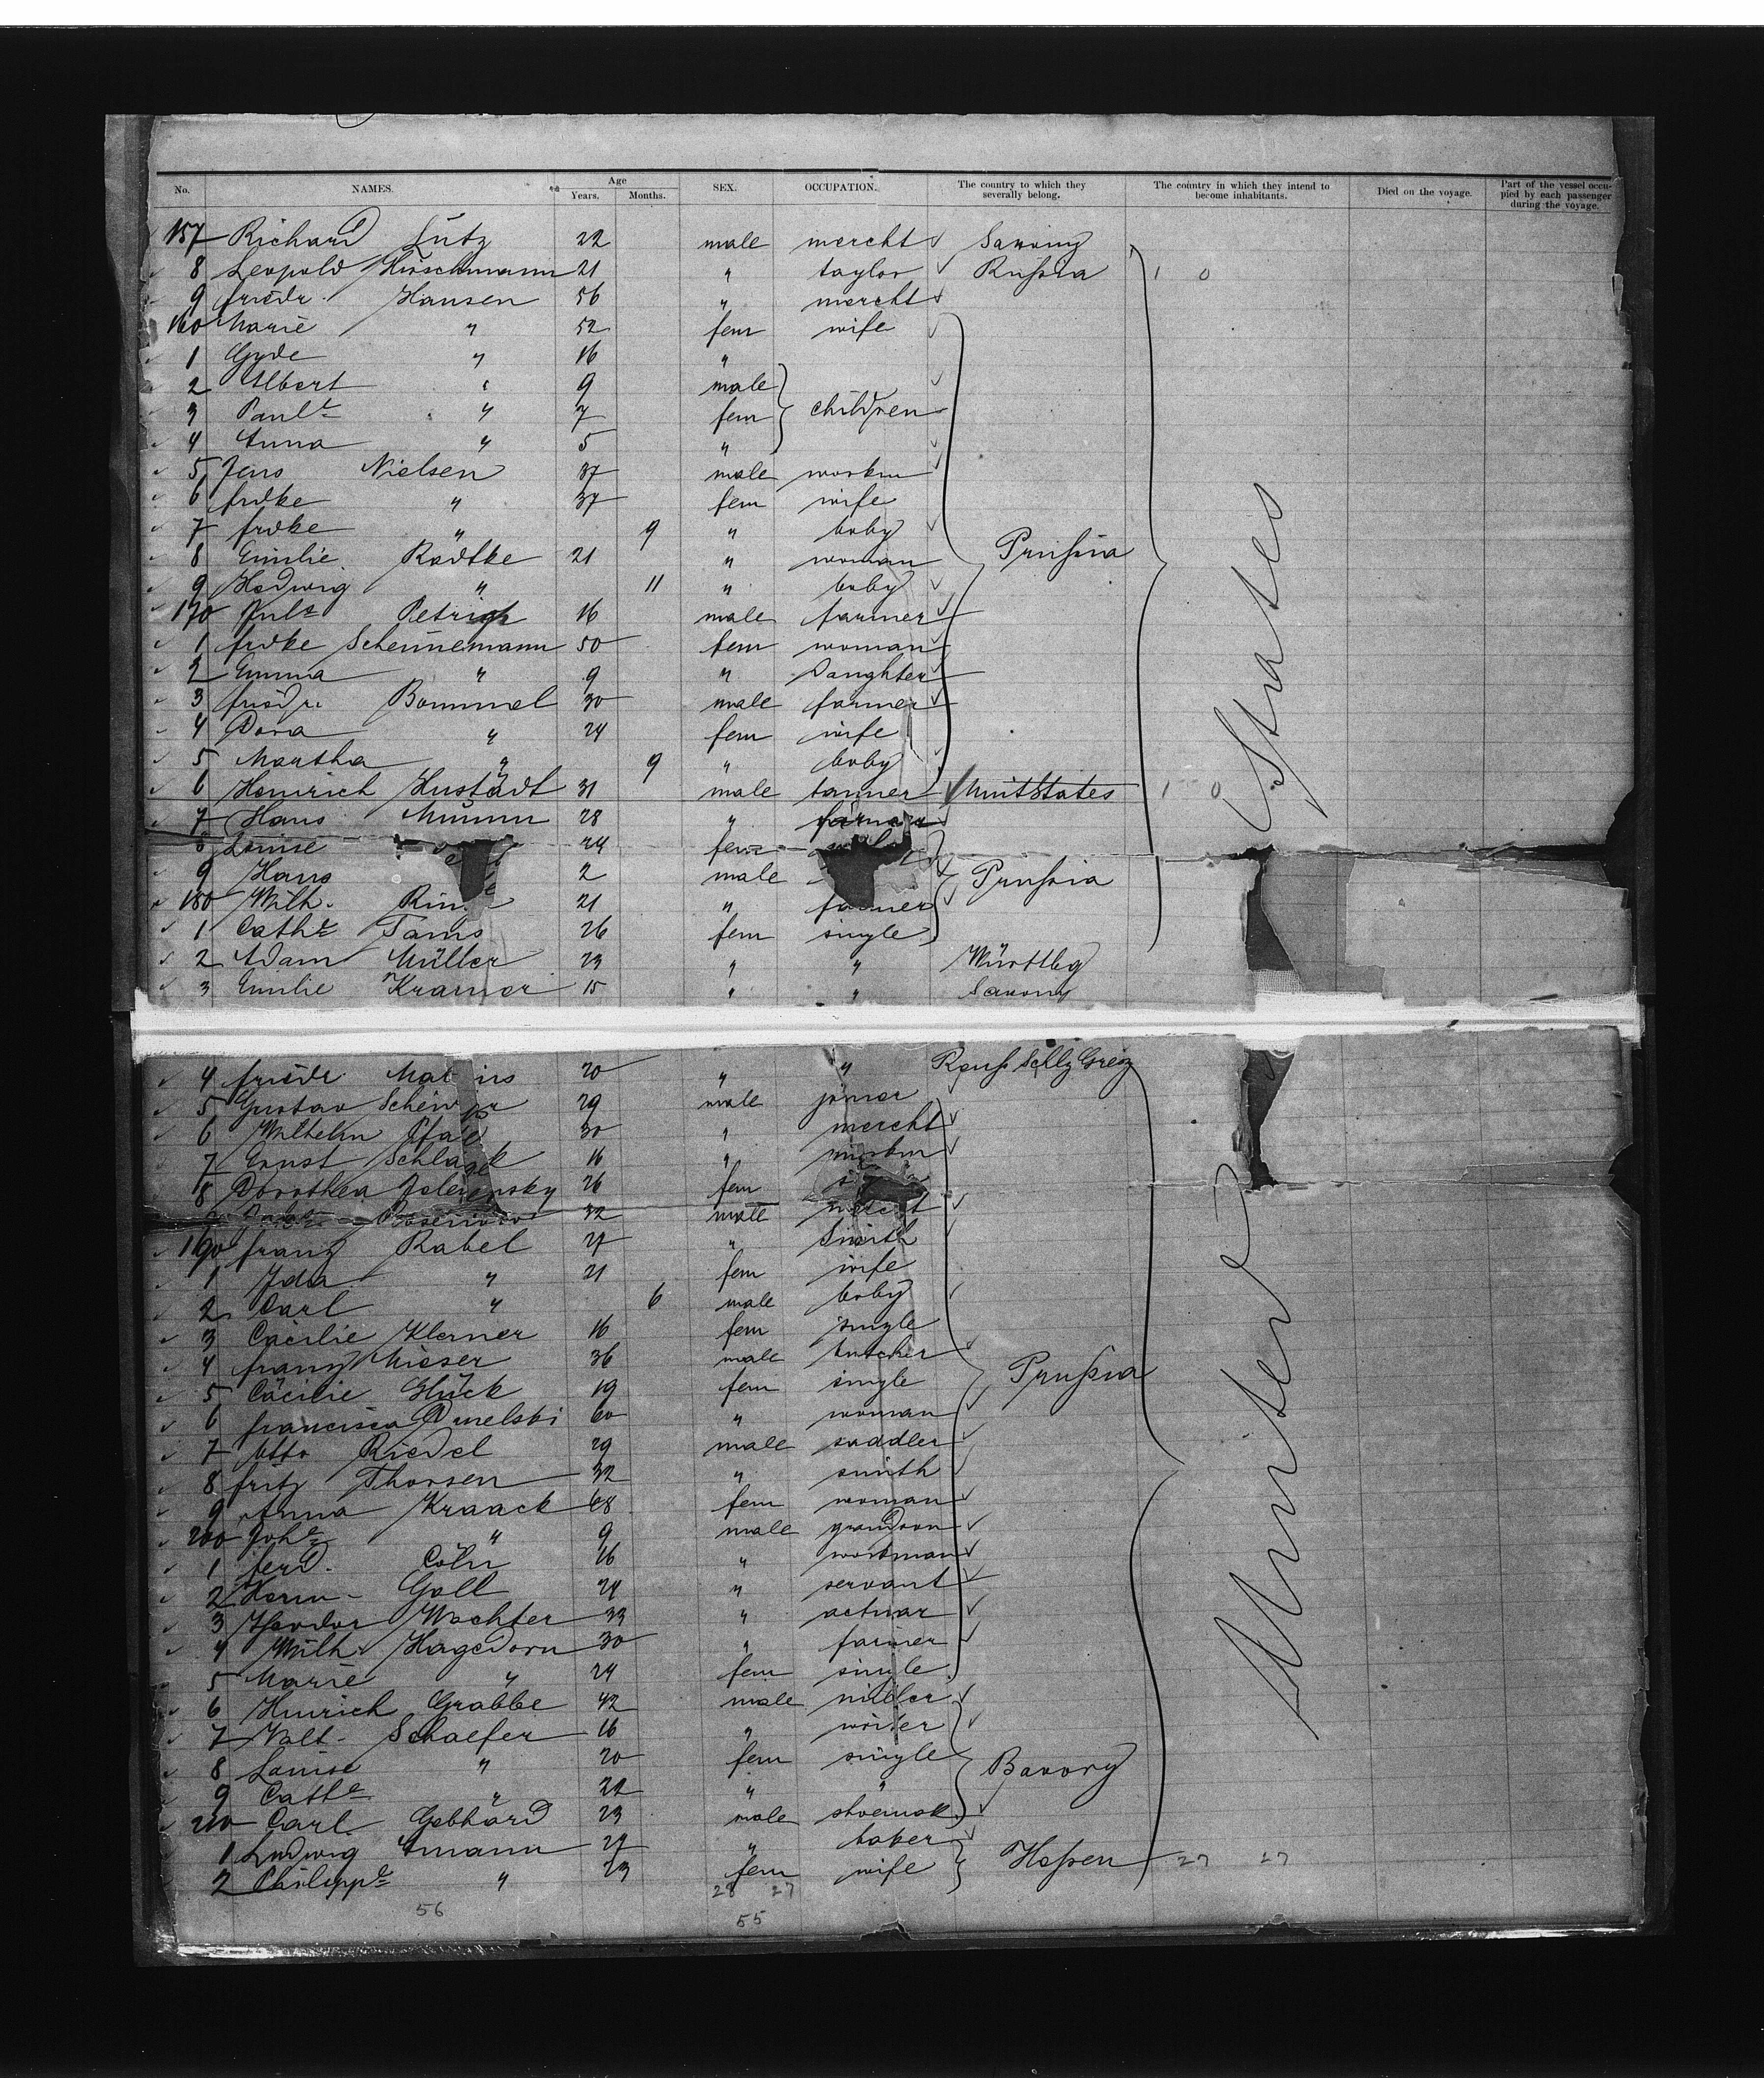 No. NAMES. Age Years. Months. SEX. OCCUPATION. The country to which they severally belong. The country in which they intend to become inhabitants. Died on the voyage. Part of the vessel occupied by each passenger during the voyage.
157 Richard Lutz 22 male mercht Saxony
8 Leopold Hirschmann 21 " taylor Russia 1 0
9 friedr. Hansen 56 " mercht
160 Marie " 52 fem wife
1 Gyde " 16 "
2 Albert " 9 male
3 Paule " 7 fem children
4 Anna " 5 "
5 Jens Nielsen 37 male workm
6 frdke " 37 fem wife
7 frdke " 9 " baby
8 Emilie Radtke 21 " woman Prussia
9 Hedwig " 11 " baby
170 Juls Petrich 16 male farmer
1 frdke Scheunemann 50 fem woman
2 Emma " 9 " Daughter
3 friedr. Bommel 30 male farmer
4 Dora " 24 fem wife
5 Martha " 9 " baby
6 Heinrich Hustädt 31 male tanner UnitStates 1 0
7 Hans Mumm 28 " farmer
8 Louise 24 fem
9 Hans 2 male Prussia
180 Wilh. 21 " farmer
1 Cathe Tams 26 fem single
2 Adam Müller 23 " " Württbg
3 Emilie Kramer 15 " " Saxony
4 friedr. 20 " " Reuss Schlz Greiz
5 Gustav 29 male joiner
6 Wilhelm 30 " mercht
7 Ernst 16 " workm
8 Dorothea 26 fem
32 male
190 franz Rabel 27 " Smith
1 Ida " 21 fem wife
2 Carl " 6 male baby
3 Cäcilie Klerner 16 fem single
4 franz Mieser 36 male butcher Prussia
5 Cäcilie Glück 19 fem single
6 francisca 60 " woman
7 Otto Riedel 29 male saddler
8 fritz Thorsen 32 " smith
9 Anna Kraack 68 fem woman
200 Johs " 9 male grandson
1 ferd. Cöln 16 " workman
2 Herm. Goll 24 " servant
3 Theodor Wachter 33 " actuar
4 Wilh. Hagedorn 30 " farmer
5 Marie " 24 fem single
6 Hinrich Grabbe 42 male miller
7 Walt. Schaefer 16 " writer
8 Louise " 20 fem single Bavory
9 Cathe " 22 " "
210 Carl Gebhard 23 male shoemak
1 Ludwig 27 " baker Hessen 27 27
2 Philippe " 23 fem wife
28 27
56 55
United States